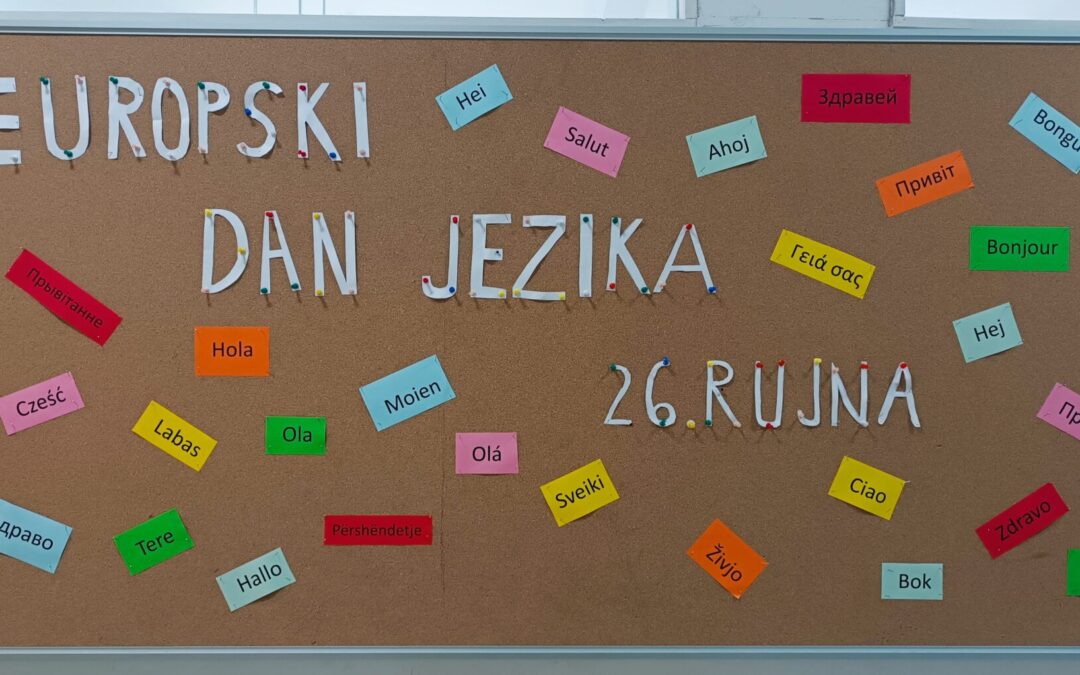 EUROPSKI
DAN JEZIKA
26. RUJNA
Hei
Salut
Ahoj
Здравей
Привіт
Γειά σας
Bonjour
Прывітанне
Hola
Hej
Cześć
Labas
Moien
Ola
Olá
Sveiki
Ciao
Zdravo
Tere
Përshëndetje
Hallo
Živjo
Bok